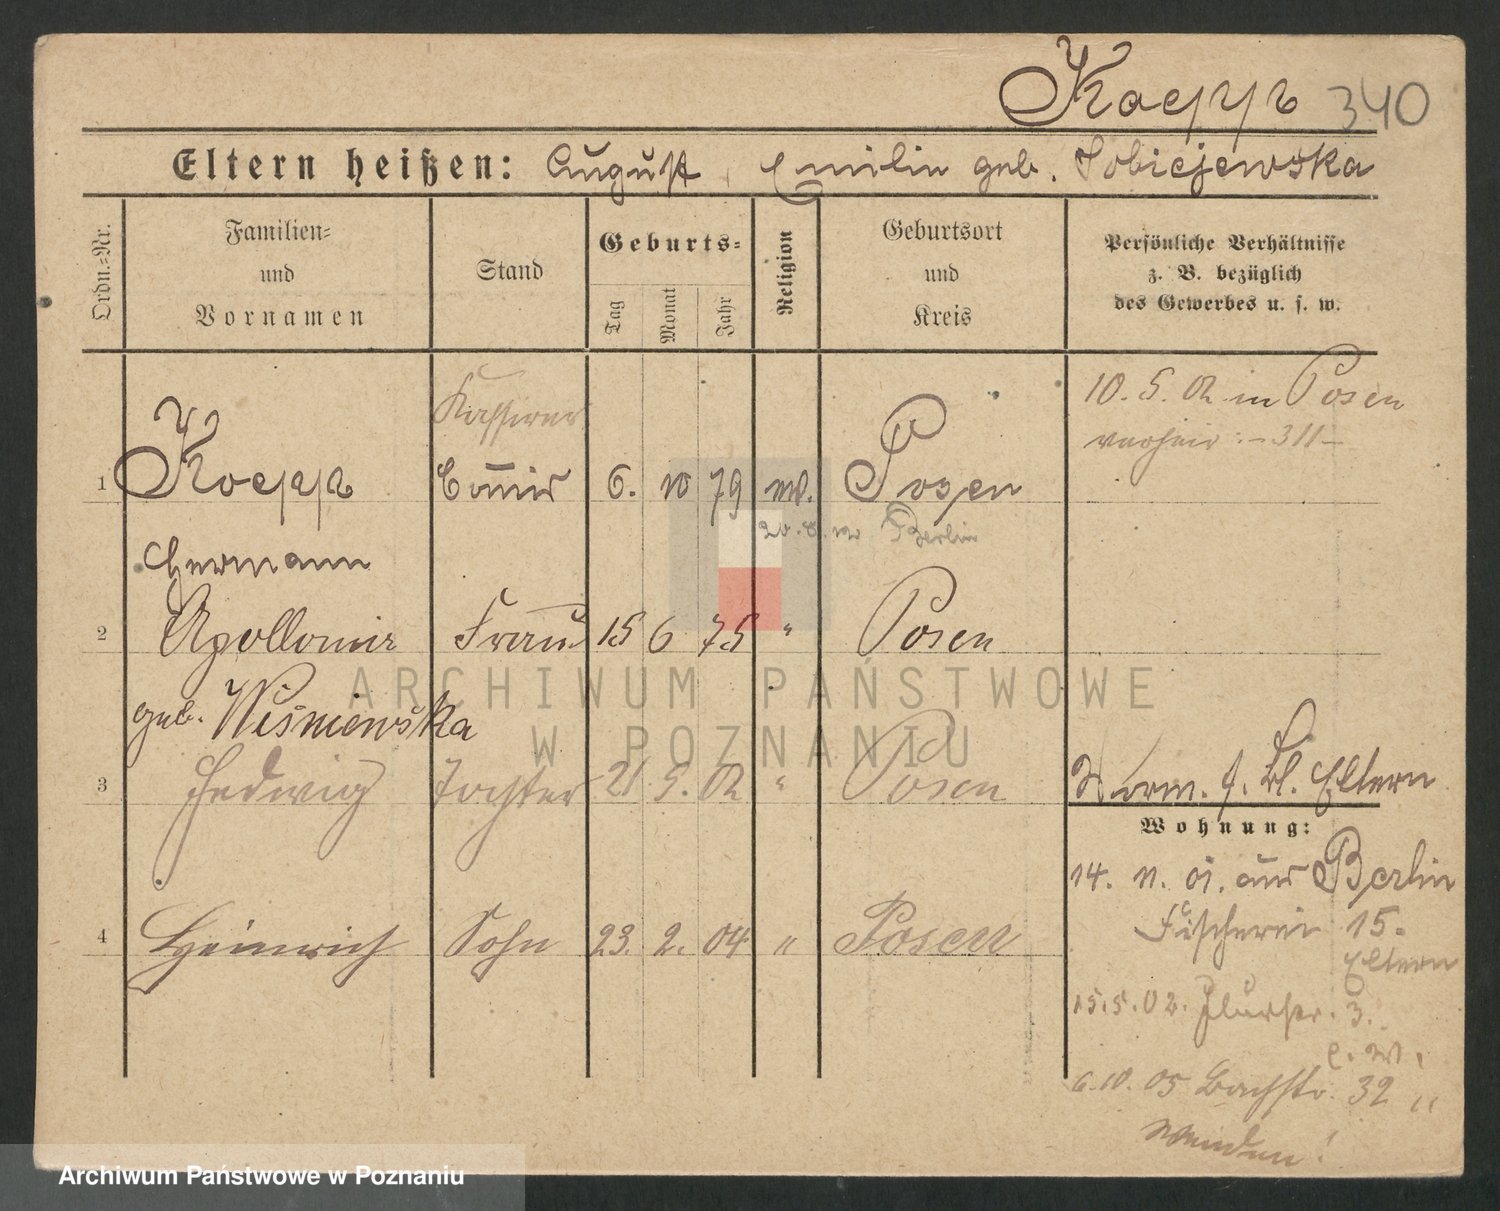 Koepp 340
Eltern heißen: August, Emilie geb. Sobiejewska
Ordn.-Nr.
Familien-
und
Vornamen
Stand
Geburts-
Tag
Monat
Jahr
Religion
Geburtsort
und
Kreis
Persönliche Verhältnisse
z. B. bezüglich
des Gewerbes u. s. w.
10. 5. 02 in Posen
verheir: -311-
Kassierer
1 Koepp Commis 6. 10 79 Posen
Berlin
Hermann
2 Apollonia Frau 15 6 75 " Posen
geb. Wiśniewska
3 Hedwig Tochter 21 5. 02 " Posen
4 Heinrich Sohn 23. 2. 04 " Posen
Vorm. s. Bl. Eltern
Wohnung:
14. 11. 01. aus Berlin
Fischerei 15.
Eltern
15.5.02. 3.
e. W.
6.10.05 Bachstr. 32 "
Wenden!
ARCHIWUM PAŃSTWOWE
W POZNANIU
Archiwum Państwowe w Poznaniu